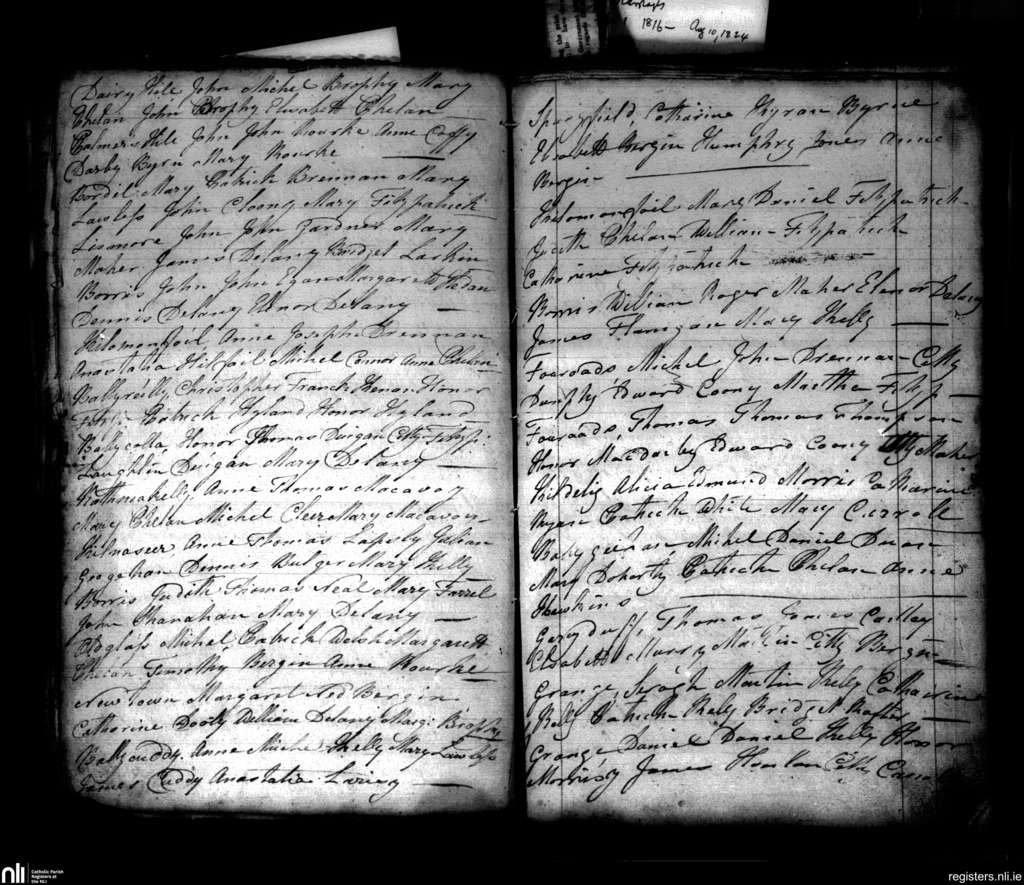 1816 - Aug 10, 1824
Dairy Hill John Michel Brophy Mary
Phelan John Brophy Elisabeth Phelan
Palmers Hill John John Rourke Anne Caffy
Darby Byrn Mary Rourke
Mary Patrick Brennan Mary
Lawless John Cloony Mary Fitzpatrick
Lismore John John Gardner Mary
Maher James Delany Bridget Larkin
Borris John John Egan Margarett
Dennis Delany Elenor Delany
Kilomenfoil Anne Joseph Brennan
Anastatia Michel Connor Anne
Ballyreilly Christopher Franck Honan Honor
Fitzp. Patrick Hyland Honor Hyland
Ballycolla Honor Thomas Duigan Citty Fitzp:
Laughlin Duigan Mary Delany
Rathmakelly Anne Thomas Macavoy
Mary Phelan Michel Cleer Mary Macavoy
Kilnaseer Anne Thomas Julian
Geogehan Dennis Bulger Mary Kelly
Borris Judith Thomas Neal Mary Farrel
John Shanahan Mary Delany
Michel Patrick Welch Margarett
Phelan Timothy Bergin Anne Rourke
New Town Margaret Ned Bergin
Catherine Dooly William Delany Marg: Brophy
Anne Miche Kelly Mary Lawless
James Cuddy Anastatia
Catharine Kyran Byrne
Elisabeth Bergin Humphry Jones Anne
Bergin
Mary Daniel Fitzpatrick
Judith Phelan William Fitzpatrick
Catharine Fitzpatrick
Borris William Roger Maher Elenor Delany
James Flanigan Mary Kelly
Foxroads Michel John Brennan Citty
Dunphy Edward Coony Martha Fitzp
Foxroads Thomas Thomas Thompson
Honor Edward Coony Maher
Kildelig Alicia Edmund Morris Catharine
Ryan Patrick White Mary Carroll
Michel Daniel Dwan
Mary Doharty Patrick Phelan Anne
Hawkins
Thomas James
Elisabeth Murry Martin Citty Bergin
Grange Martin Kelly Catharine
Kelly Patrick Kelly Bridget Rafter
Grange Daniel Daniel Kelly Honor
Morrissy James Citty
nli
Catholic Parish
Registers at
the NLI
registers.nli.ie